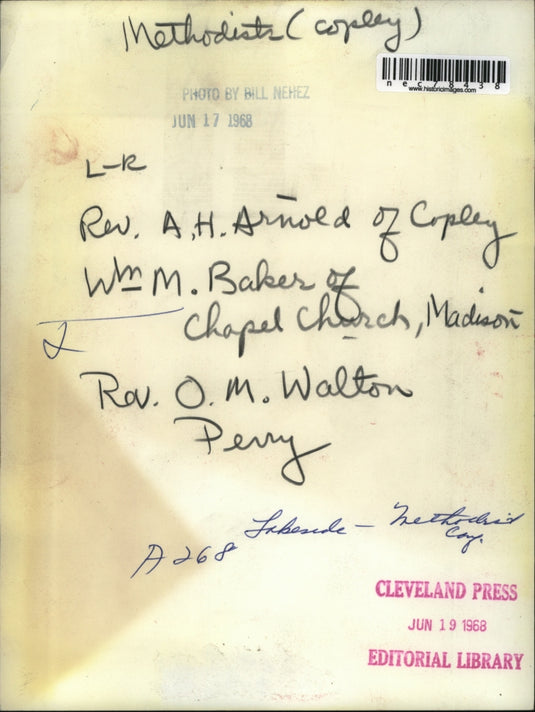 Methodists (copley)
nec78438
www.historicimages.com
PHOTO BY BILL NEHEZ
JUN 17 1968
L-R
Rev. A.H. Arnold of Copley
Wm M. Baker of
Chapel Church, Madison
2
Rev. O. M. Walton
Perry
Lakeside - Methodist
A268
CLEVELAND PRESS
JUN 19 1968
EDITORIAL LIBRARY